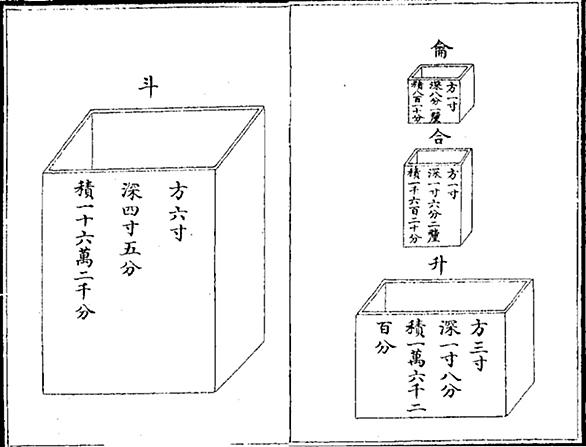 龠
方一寸
深八分一釐
積八百一十分
合
方一寸
深一寸六分二釐
積一千六百二十分
升
方三寸
深一寸八分
積一萬六千二
百分
斗
方六寸
深四寸五分
積一十六萬二千分